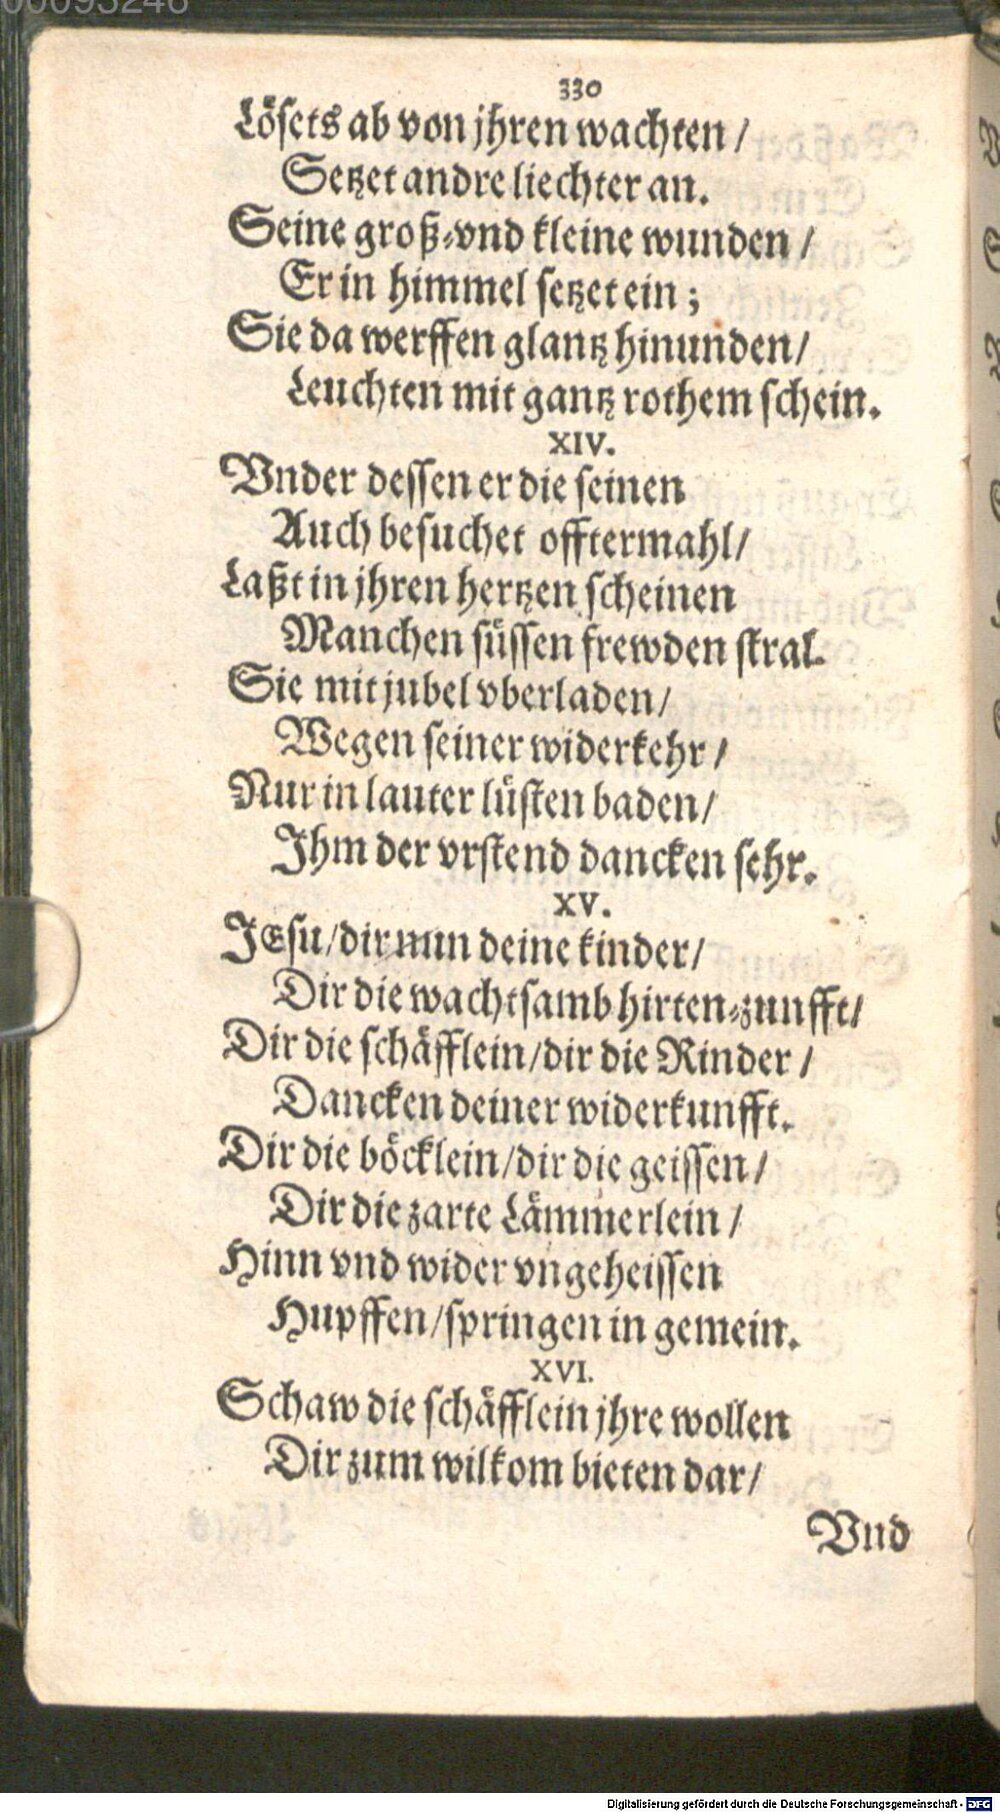 330
Lösets ab von jhren wachten /
Setzet andre liechter an.
Seine groß-vnd kleine wunden /
Er in himmel setzet ein ;
Sie da werffen glantz hinunden /
Leuchten mit gantz rothem schein.
XIV.
Vnder dessen er die seinen
Auch besuchet offtermahl /
Laßt in jhren hertzen scheinen
Manchen süssen frewden stral.
Sie mit jubel vberladen /
Wegen seiner widerkehr /
Nur in lauter lüsten baden /
Ihm der vrstend dancken sehr.
XV.
JEsu / dir nun deine kinder /
Dir die wachtsamb hirten-zunfft /
Dir die schäfflein / dir die Rinder /
Dancken deiner widerkunfft.
Dir die böcklein / dir die geissen /
Dir die zarte Lämmerlein /
Hinn vnd wider vngeheissen
Hupffen / springen in gemein.
XVI.
Schaw die schäfflein jhre wollen
Dir zum wilkom bieten dar /
Vnd
Digitalisierung gefördert durch die Deutsche Forschungsgemeinschaft - DFG